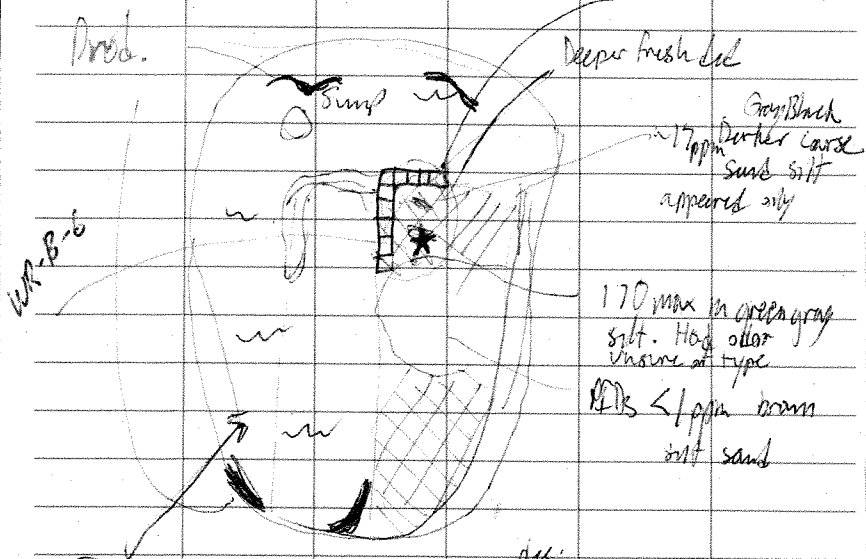 Prod.
Deeper fresh
Sump
Gray Black
~17ppm Darker coarse
sand silt
appeared oily
WR-B-6
170 max in green gray
silt. Had odor
unsure of type
PIDs <1 ppm brown
silt sand